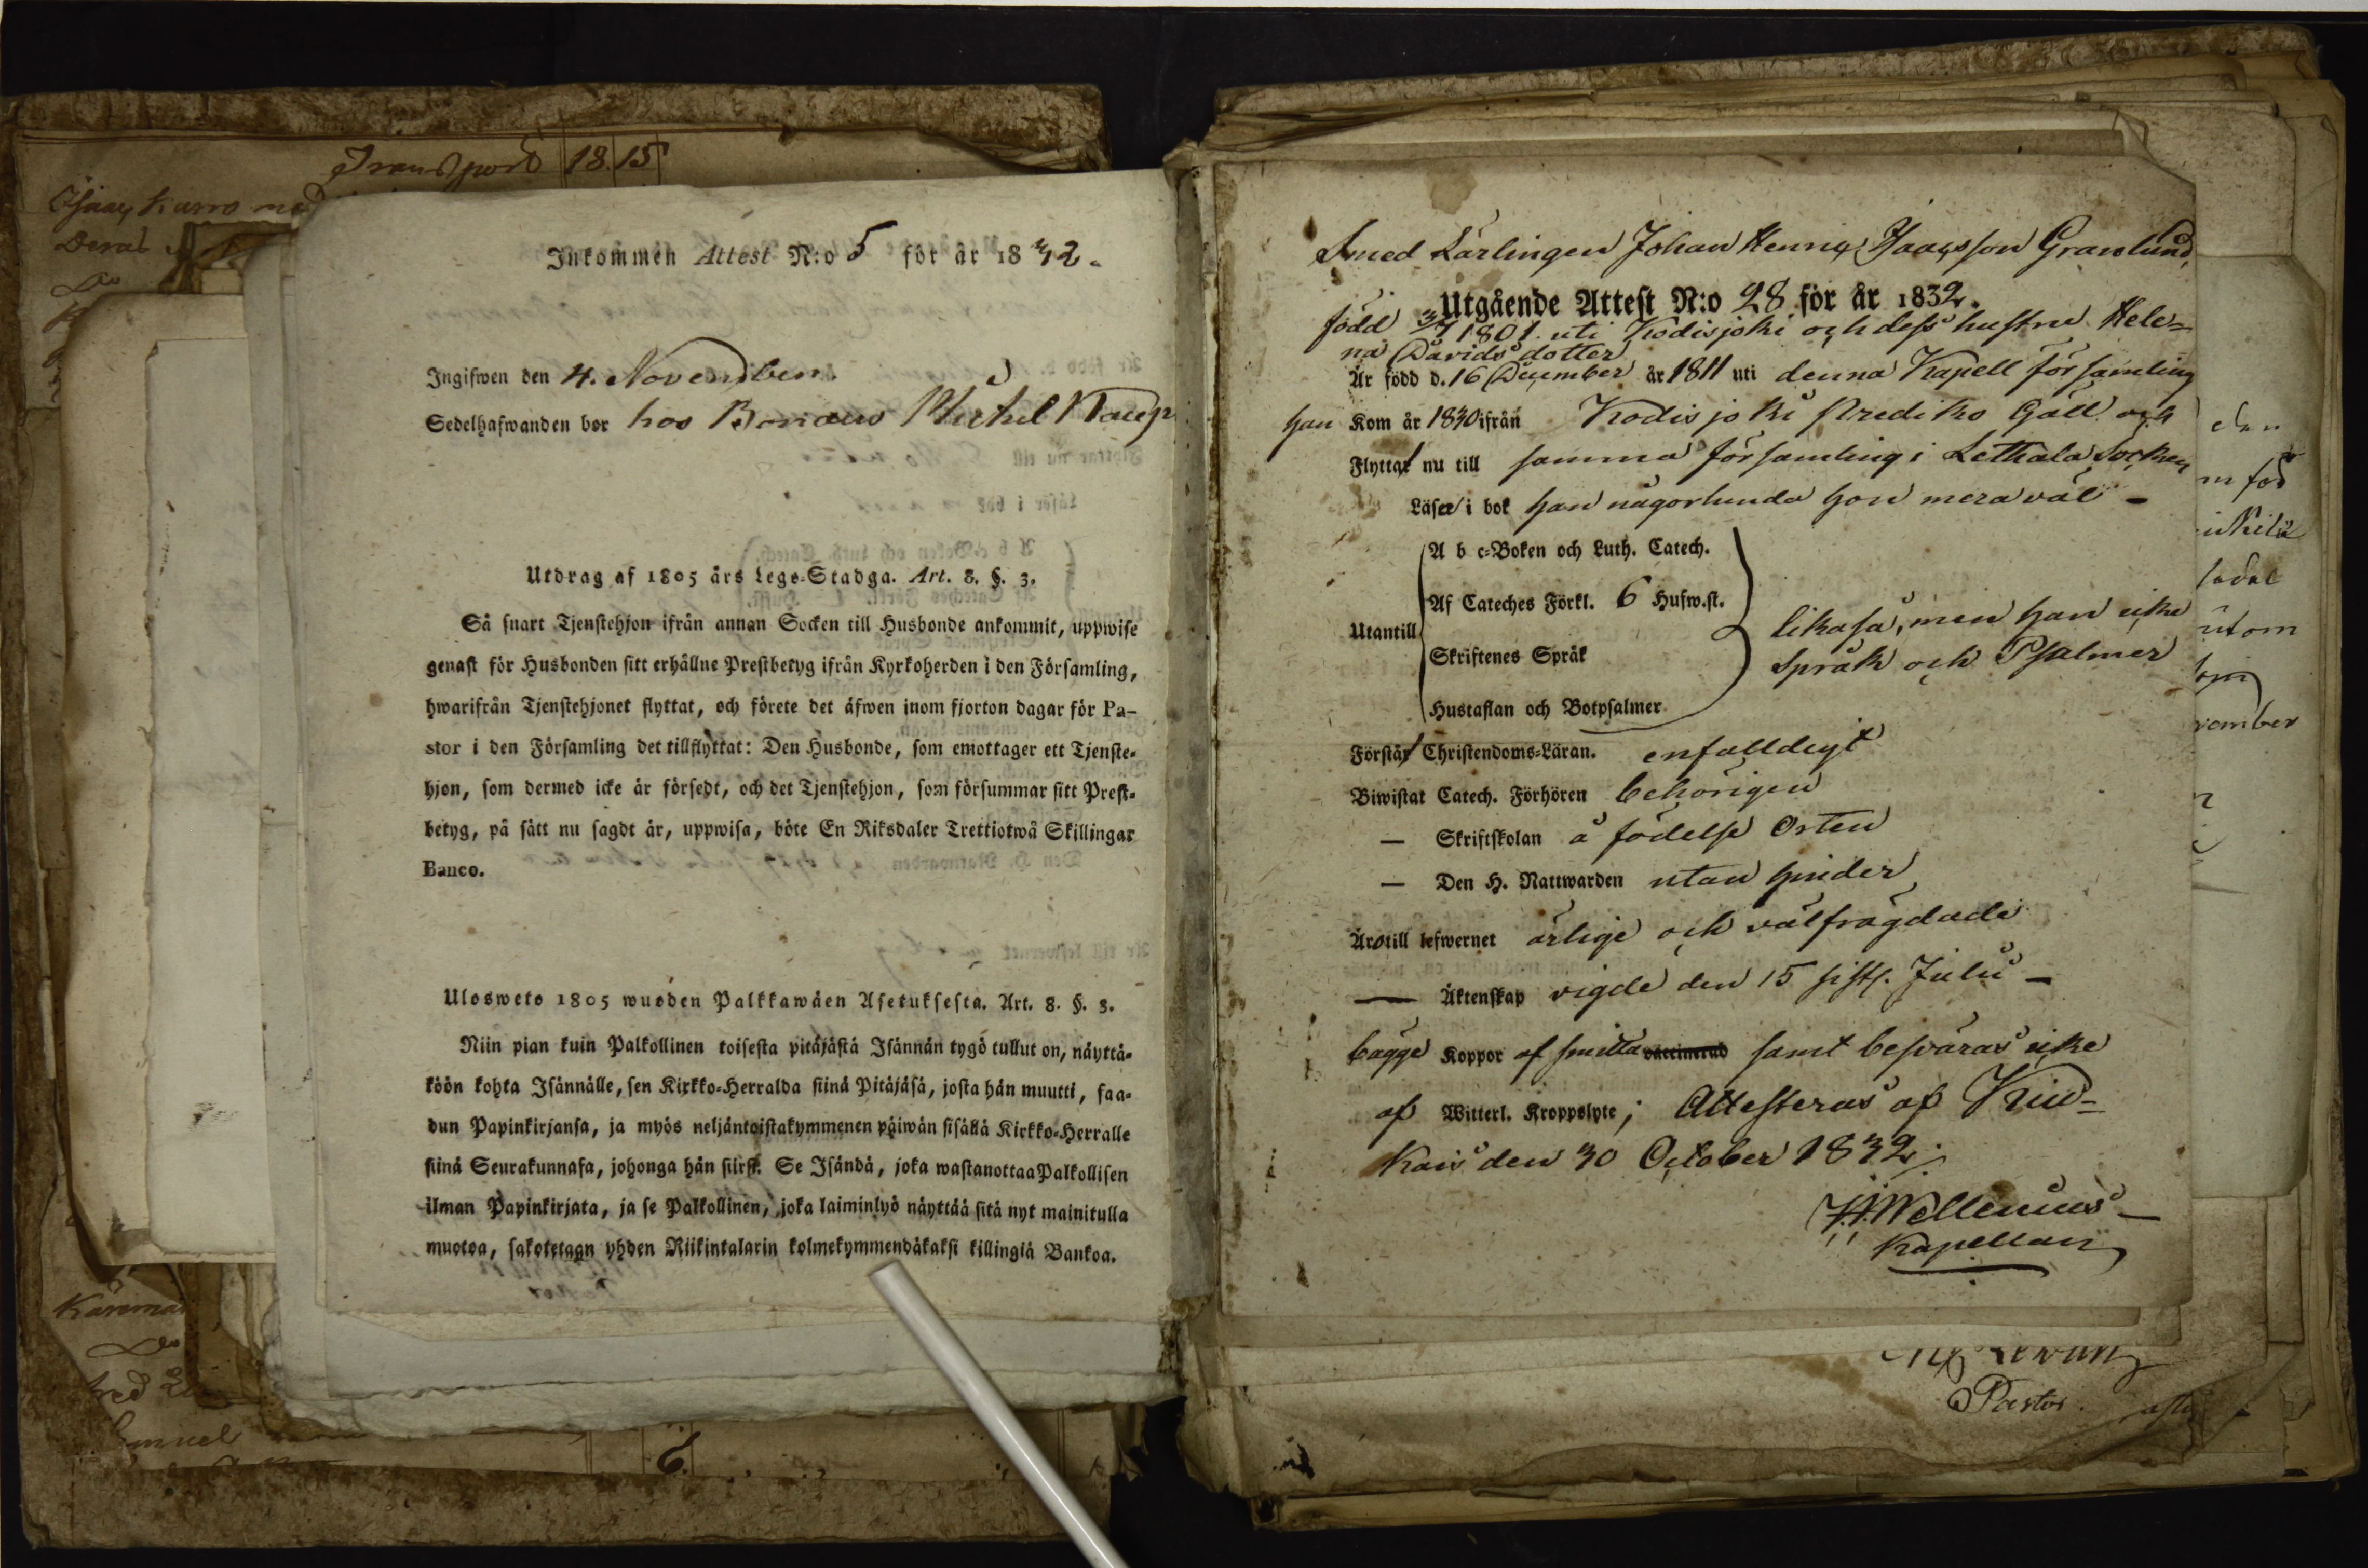 Transport 18. 15
Inkommen Attest N:o 5 för år 1832.
Ingifwen den 4. November.
Sedelhafwanden bor hos Bonden Michel Kaup
Utdrag af 1805 års Lego-Stadga. Art. 8. §. 3.
Så snart Tjenstehjon ifrån annan Socken till Husbonde ankommit, uppwise
genast för Husbonden sitt erhållne Prestbetyg ifrån Kyrkoherden i den Församling,
hwarifrån Tjenstehjonet flyttat, och förete det äfwen inom fjorton dagar för Pa-
stor i den Församling det tillflyttat: Den Husbonde, som emottager ett Tjenste-
hjon, som dermed icke är försedt, och det Tjenstehjon, som försummar sitt Prest-
betyg, på sätt nu sagdt är, uppwisa, böte En Riksdaler Trettiotwå Skillingar
Banco.
Ulosweto 1805 wuoden Palkkawäen Asetuksesta. Art. 8. §. 3.
Niin pian kuin Palkollinen toisesta pitäjästä Isännän tygö tullut on, näyttä-
köön kohta Isännälle, sen Kirkko-Herralda siinä Pitäjäsä, josta hän muutti, saa-
dun Papinkirjansa, ja myös neljäntoistakymmenen päiwän sisällä Kirkko-Herralle
siinä Seurakunnasa, johonga hän siirst. Se Isändä, joka wastanottaa Palkollisen
ilman Papinkirjata, ja se Palkollinen, joka laiminlyö näyttää sitä nyt mainitulla
muotoa, sakotetaan yhden Riikintalarin kolmekymmendäkaksi killingiä Bankoa.
Smed Lärlingen Johan Henric Isaacsson Granlund,
Utgående Attest N:o 28 för år 1832.
född 3/7 1801 uti Kodisjoki och dess hustru Hele-
na Davidsdotter
Är född d. 16 December år 1811 uti denna Kapell församling
han Kom år 1830 ifrån Kodisjoki Prediko Gäll och
Flyttat nu till samma församling i Lethala Socken
Läser i bok han någorlunda hon mera väl –
A b c-Boken och Luth. Catech.
Af Cateches Förkl. 6 Husw.st.
Utantill
Skriftenes Språk
Hustaflan och Botpsalmer
likaså, men han icke
Språk och Psalmer
Förstår Christendoms-Läran. enfalldigt
Biwistat Catech. Förhören behörigen
— Skriftskolan å födelse Orten
— Den H. Nattwarden utan hinder
Äro till lefwernet ärlige och välfrägdade
— Äktenskap vigde den 15 sistl. Julii –
bägge Koppor af smitta vaccinerad samt besväras icke
af Witterl. Kroppslyte; Attesteras af Kiu-
kais den 30 October 1832.
Wellenius
Kapellan
Pastor.
utom